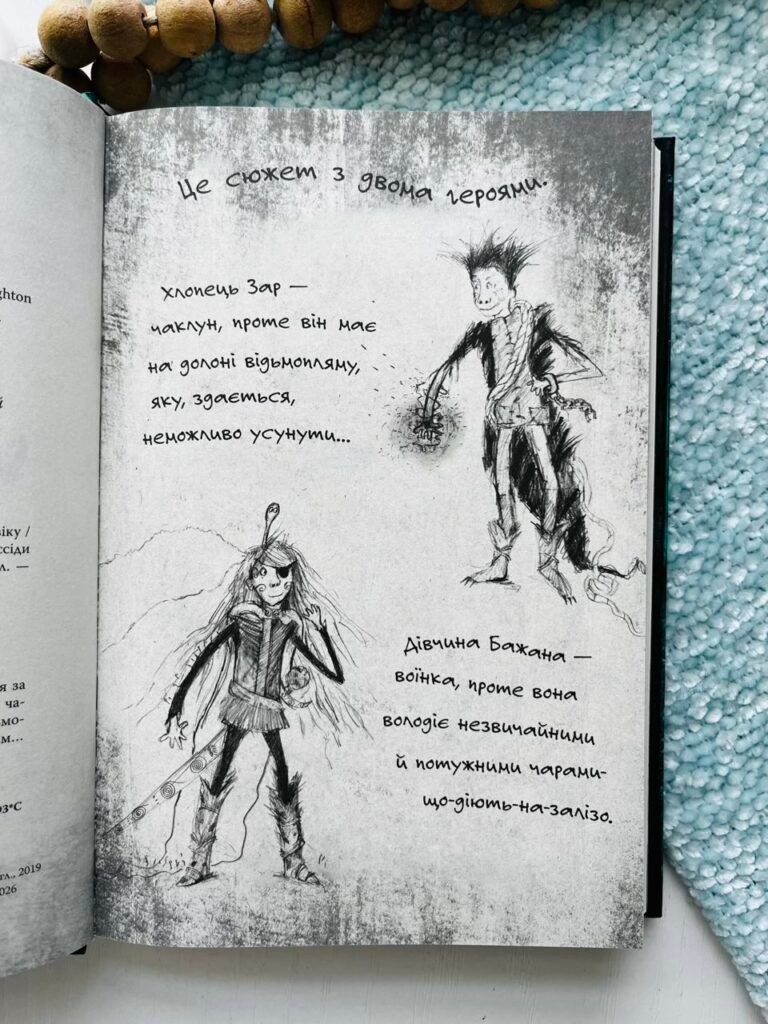 ghton
й
віку /
ссіди
л. —
я за
ча-
мо-
м...
03*С
гл., 2019
026
Це сюжет з двома героями.
Хлопець Зар —
чаклун, проте він має
на долоні відьмопляму,
яку, здається,
неможливо усунути...
Дівчина Бажана —
воїнка, проте вона
володіє незвичайними
й потужними чарами-
що-діють-на-залізо.